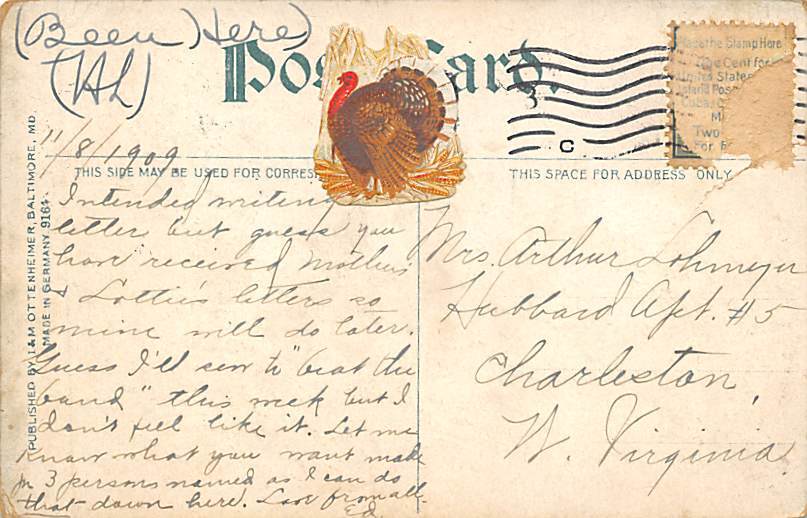 (Been) Here)
(HL)
Post Card.
11/8/1909
THIS SIDE MAY BE USED FOR CORRES
THIS SPACE FOR ADDRESS ONLY
Place the Stamp Here
One Cent for
United States
Island Poss
Cuba
Two
For F
C
PUBLISHED BY I & M OTTENHEIMER, BALTIMORE, MD.
MADE IN GERMANY. 9164
Intended writing
letter but guess you
have received Mother's
& Lottie's letters so
mine will do later.
Guess I'll sew to "beat the
band" this week but I
don't feel like it. Let me
know what you want make
for 3 persons named as I can do
that down here. Love from all.
Ed
Mrs. Arthur Lohmeyer
Hubbard Apt. #5
Charleston,
W. Virginia